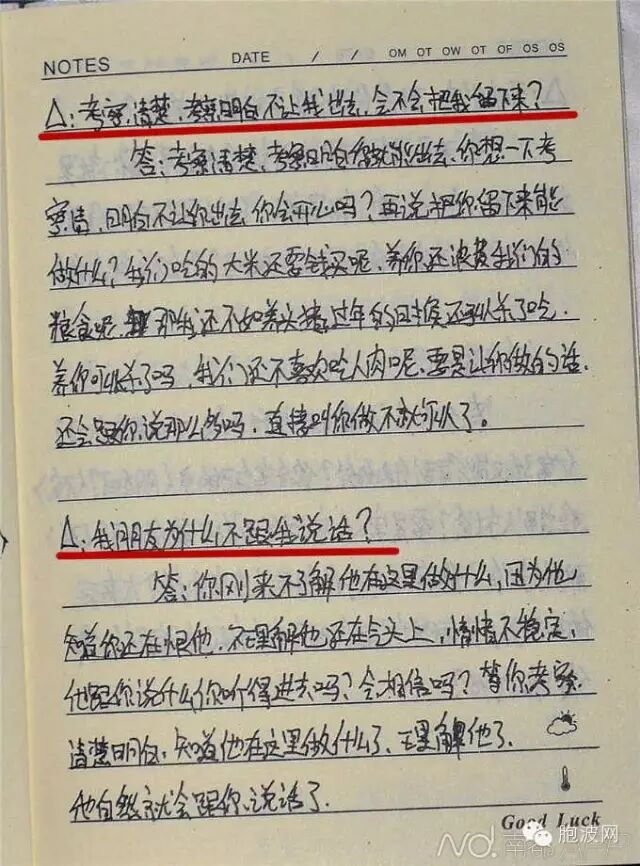 NOTES DATE / / OM OT OW OT OF OS OS
△:考察清楚、考察明白不让我出去,会不会把我留下来?
答:考察清楚、考察明白你就能出去,你想一下考
察清,明白不让你出去你会开心吗?再说把你留下来能
做什么?我们吃的大米还要钱买呢、养你还浪费我们的
粮食呢,那我还不如养头猪过年的时候还可以杀了吃,
养你可以杀了吗,我们还不喜欢吃人肉呢、要是让你做的话,
还会跟你说那么多吗,直接叫你做不就可以了。
△:我朋友为什么不跟我说话?
答:你刚来不了解他在这里做什么,因为他
知道你还在恨他,不理解他还在气头上,情情不稳定,
他跟你说什么你听得进去吗?会相信吗?等你考察
清楚明白,知道他在这里做什么了、理解他了,
他自然就会跟你说话了。
Good Luck
南都
胞波网